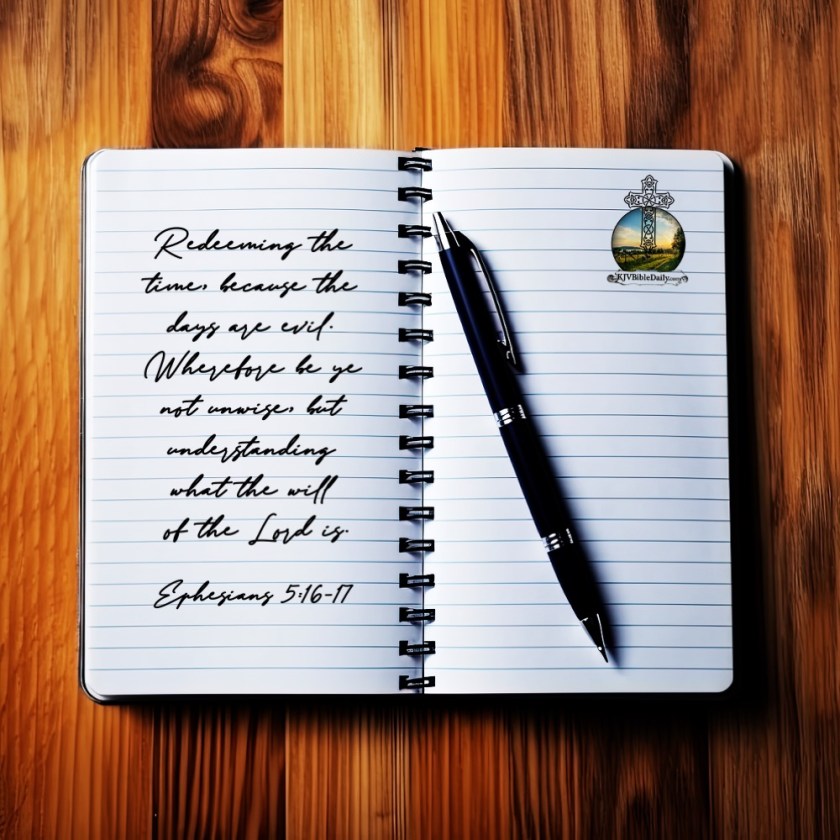 Redeeming the
time, because the
days are evil.
Wherefore be ye
not unwise, but
understanding
what the will
of the Lord is.
Ephesians 5:16-17
KJVBibleDaily.com